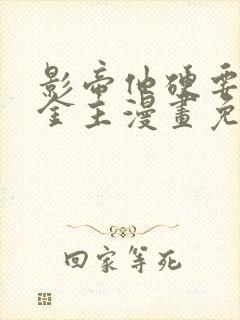 影帝他硬要
金主漫畫免
回家等死